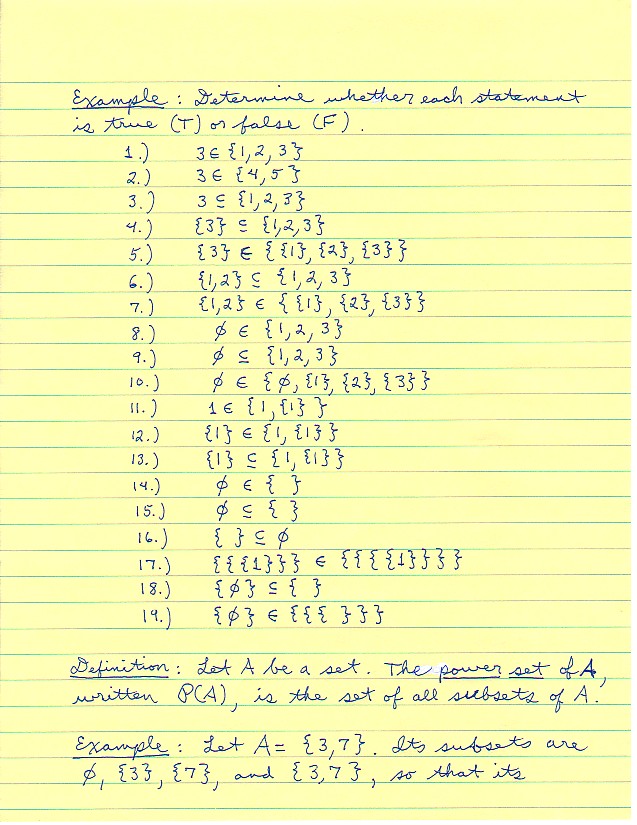 Example : Determine whether each statement
is true (T) or false (F) .
1.) 3 ∈ {1, 2, 3}
2.) 3 ∈ {4, 5}
3.) 3 ⊆ {1, 2, 3}
4.) {3} ⊆ {1, 2, 3}
5.) {3} ∈ { {1}, {2}, {3} }
6.) {1, 2} ⊆ {1, 2, 3}
7.) {1, 2} ∈ { {1}, {2}, {3} }
8.) ∅ ∈ {1, 2, 3}
9.) ∅ ⊆ {1, 2, 3}
10.) ∅ ∈ { ∅, {1}, {2}, {3} }
11.) 1 ∈ { 1, {1} }
12.) {1} ∈ {1, {1} }
13.) {1} ⊆ {1, {1} }
14.) ∅ ∈ { }
15.) ∅ ⊆ { }
16.) { } ⊆ ∅
17.) {{{1}}} ∈ {{{{1}}}}
18.) {∅} ⊆ { }
19.) {∅} ∈ {{{ }}}
Definition : Let A be a set. The power set of A,
written P(A), is the set of all subsets of A.
Example : Let A = {3, 7}. Its subsets are
∅, {3}, {7}, and {3, 7}, so that its